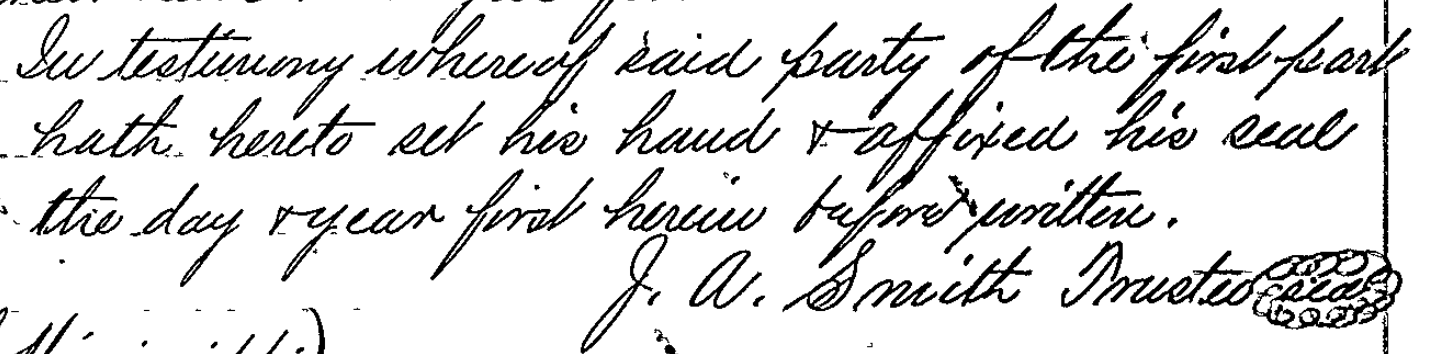 In testimony whereof said party of the first part
hath hereto set his hand & affixed his seal
the day & year first herein before written.
J. A. Smith Trustee seal